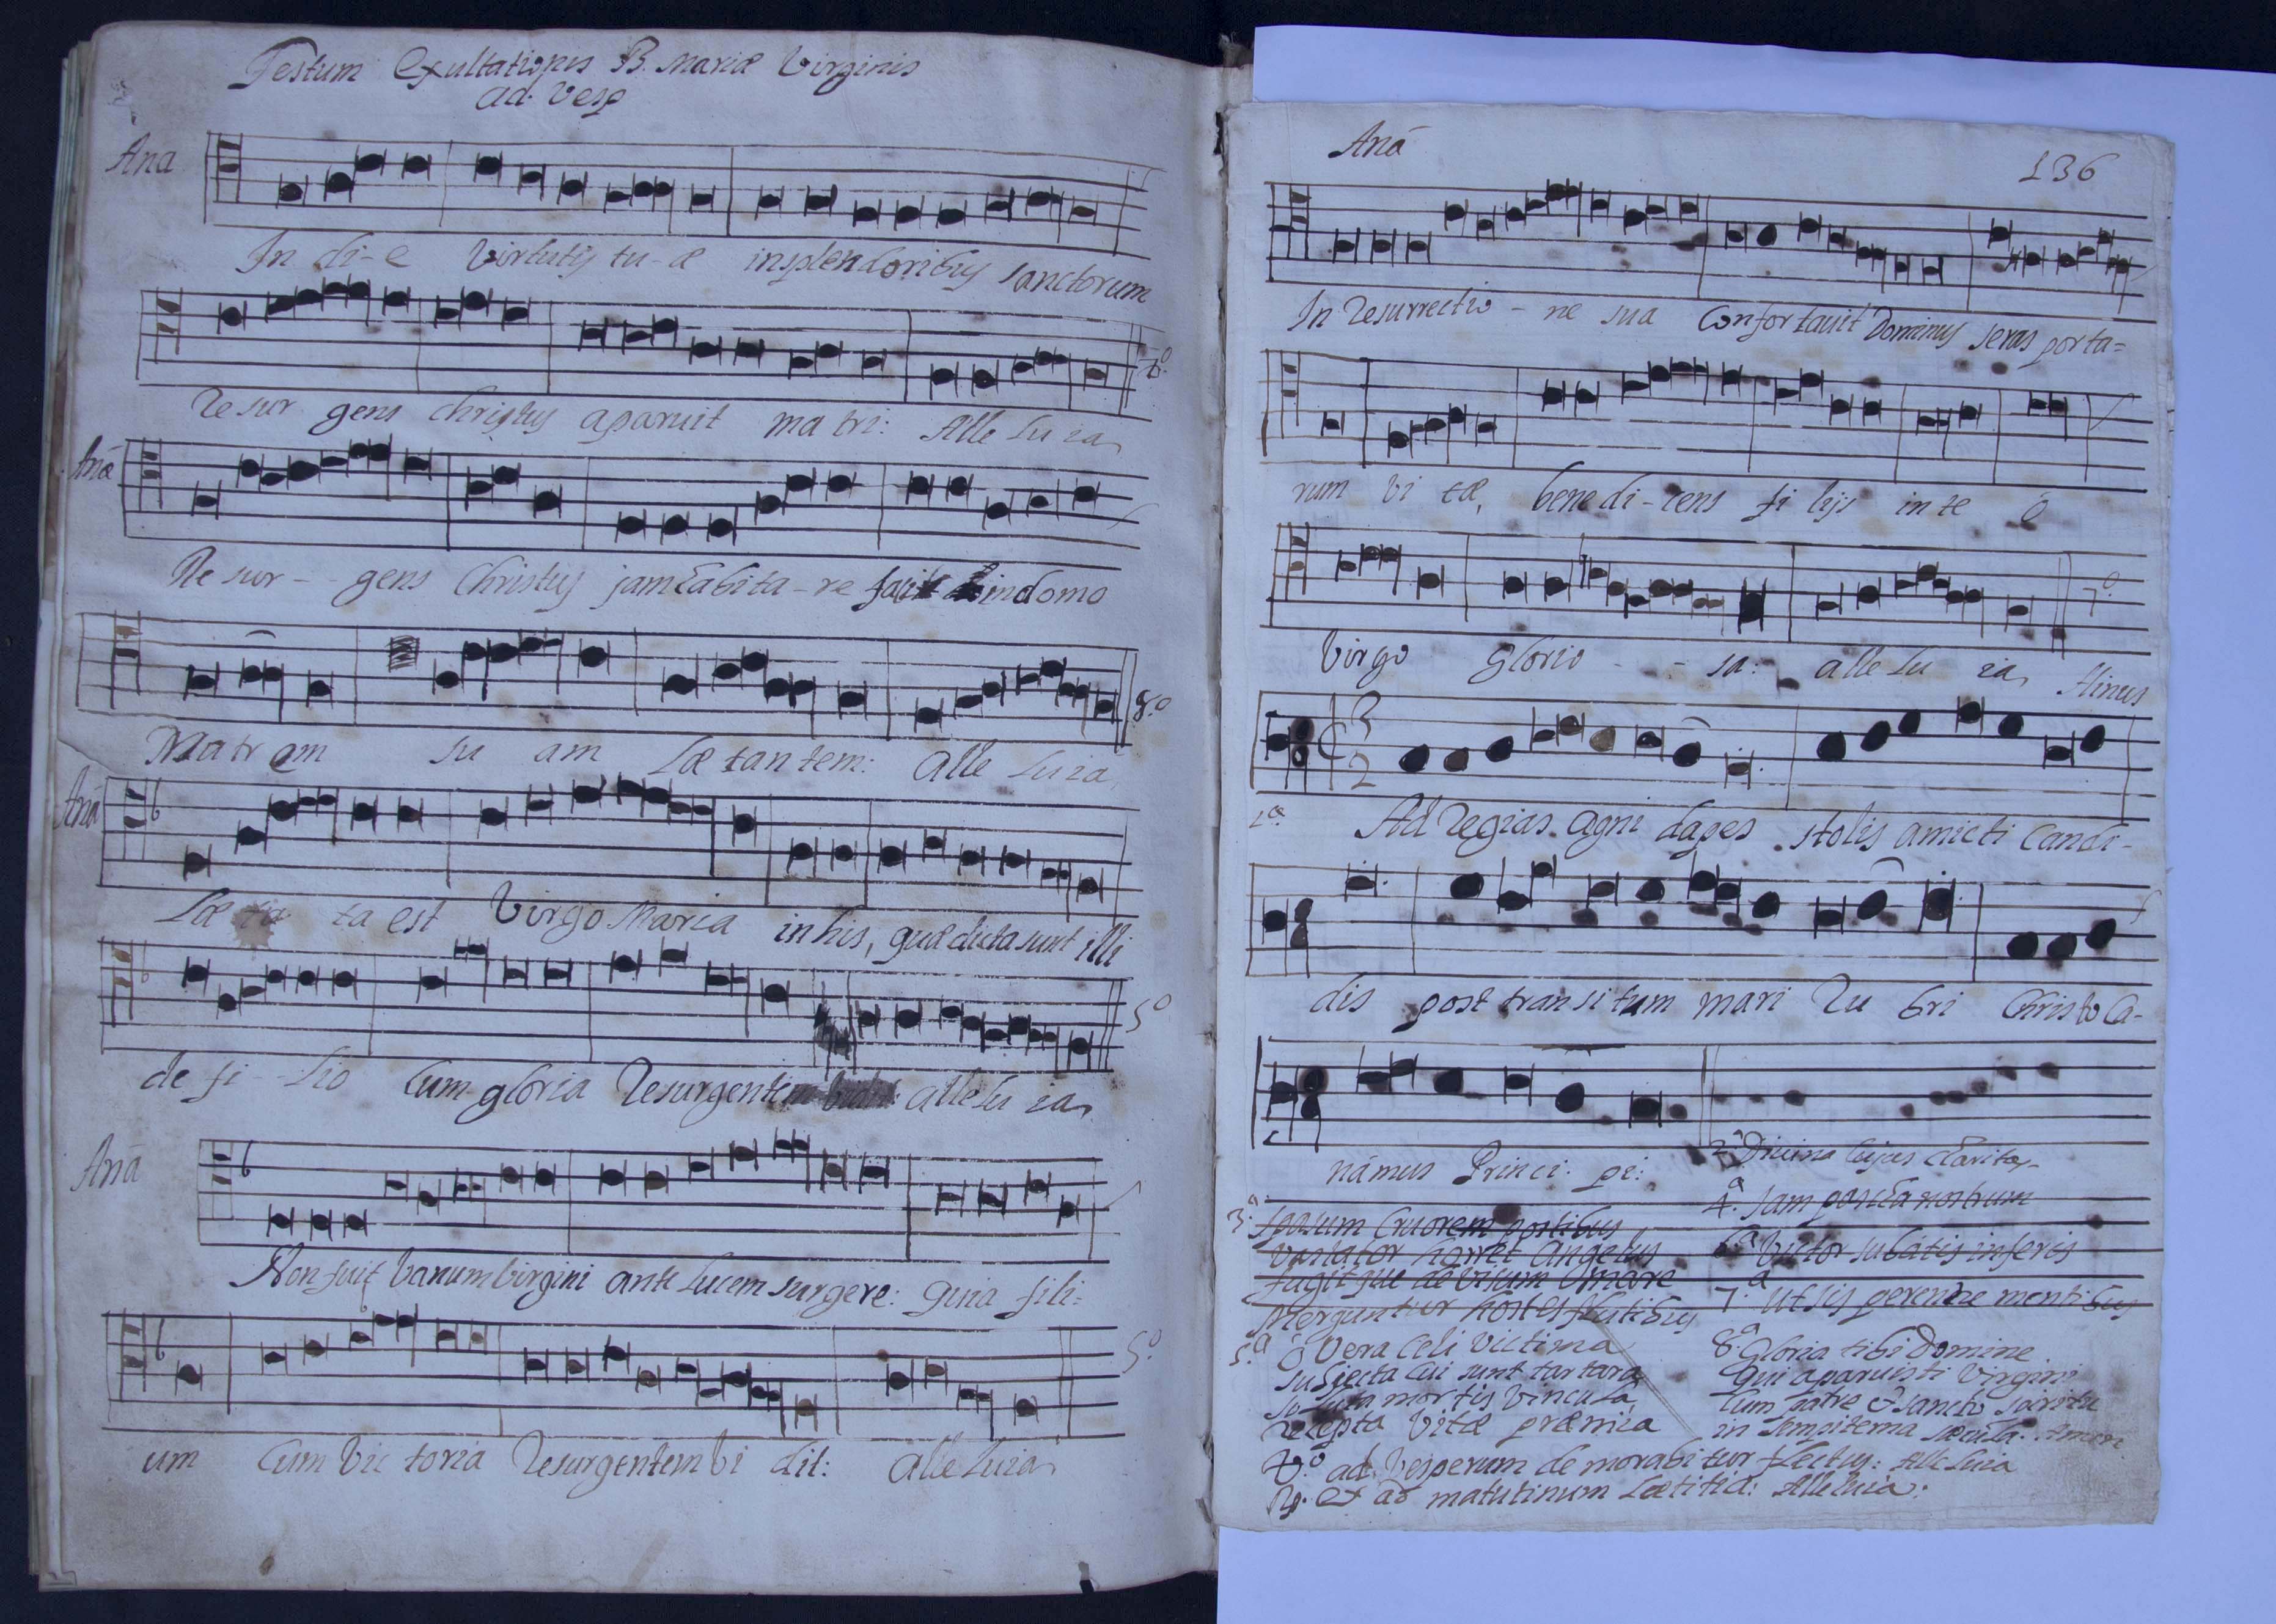 Festum Exultationis B. Mariæ Virginis
ad. Vesp
Ana
In di-e Virtutis tu-æ insplendoribus sanctorum
Resur gens Christus aparuit matri: Alle lu ia
7.º
Anã
Resur - - gens Christus jam habita-re facit indomo
Matrem su am Læ tan tem: alle luia
8.º
Anã
Læ ta ta est Virgo Maria in his, quæ dicta sunt illi
de fi - - lio Cum gloria Resurgentem alle lu ia
5º
Anã
Non fuit vanum virgini ante lucem surgere: quia fili:
um Cum Vic toria Resurgentem vi dit: alleluia
5º
Anã
136
In Resurrectio - ne sua Confortavit Dominus seras porta=
rum vi tæ, benedi-cens filijs in te ô
Virgo glorio - - sa: alle lu ia
7º
Himus
3
2
1ª Ad Regias Agni dapes stolis amicti Candi-
dis post transitum mari Ru bri Christo Ca-
námus Princi: pi:
2ª Divina cujus charitas
3.ª Sparsum Cruorem postibus
Vastator horret Angelus
fugitque divisum mare
Merguntur hostes fluctibus
4.ª Jam pascha nostrum
6.ª Victor subátis inferis
7.ª Ut sis perenne mentibus
5.ª ô Vera Celi Victima
Subjecta Cui sunt tartara
soluta mortis Vincula
recepta Vitæ præmia
8.ª Gloria tibi Domine
Qui aparuisti Virgini
Cum patre & sancto spiritu
in sempiterna sæcula. Amen
V.º ad Vesperum demorabitur flectus: Alleluia
R. et ad matutinum Lætitia: Alleluia: